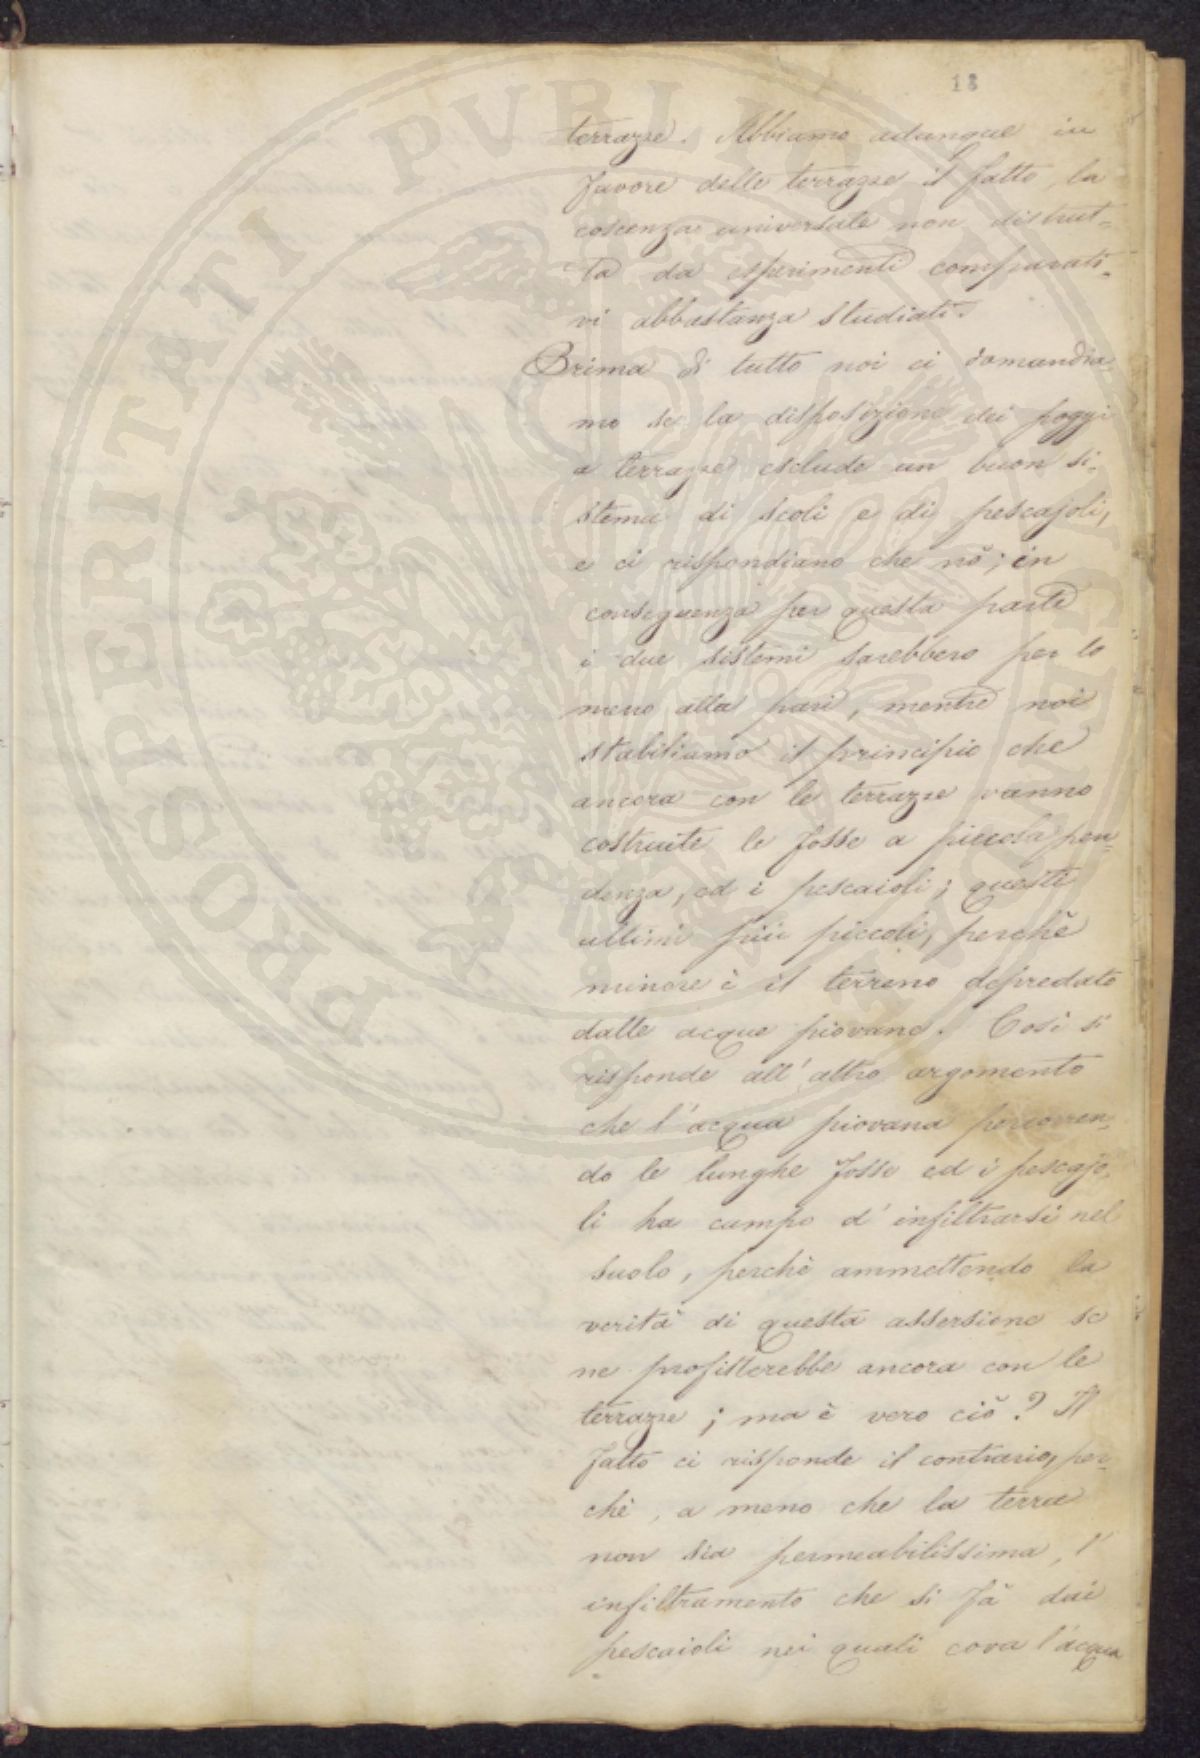 PROSPERITATI PUBLICAE AUGENDAE
18
terrazze. Abbiamo adunque in
favore delle terrazze il fatto, la
coscenza universale non distrut-
ta da esperimenti comparati-
vi abbastanza studiati.
Prima di tutto noi ci domandia-
mo se la disposizione dei poggi
a terrazze esclude un buon si-
stema di scoli e di pescajoli,
e ci rispondiano che nò; in
conseguenza per questa parte
i due sistemi sarebbero per lo
meno alla pari, mentre noi
stabiliamo il principio che
ancora con le terrazze vanno
costruite le fosse a piccola pen-
denza, ed i pescaioli; questi
ultimi più piccoli, perchè
minore è il terreno depredato
dalle acque piovane. Così si
risponde all'altro argomento
che l'acqua piovana percorren-
do le lunghe fosse ed i pescajo-
li ha campo d'infiltrarsi nel
suolo, perchè ammettendo la
verità di questa assersione se
ne profitterebbe ancora con le
terrazze; ma è vero ciò? Il
fatto ci risponde il contrario, per-
chè, a meno che la terra
non sia permeabilissima, l'
infiltramento che si fà dai
pescaioli nei quali cova l'acqua